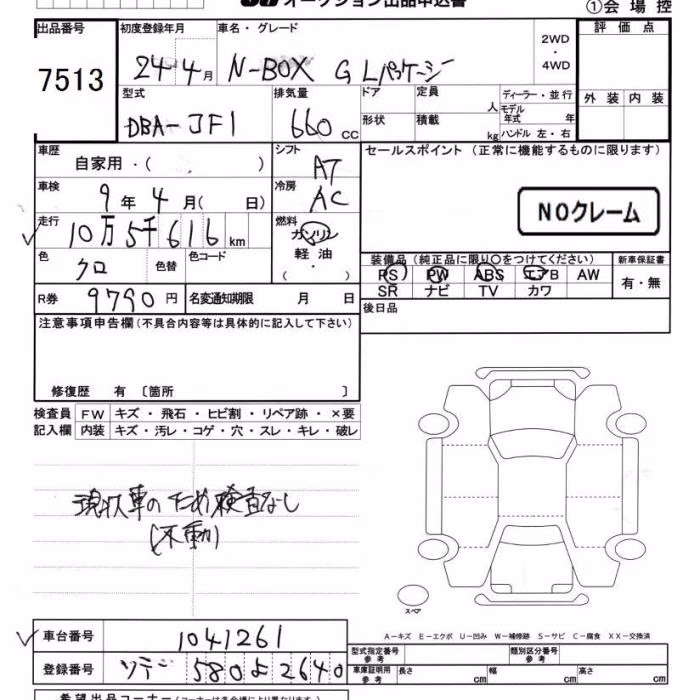 オークション出品申込書
①会場控
出品番号
初度登録年月 車名・グレード
評価点
7513
24年4月 N-BOX G Lパッケージ
2WD
・
4WD
型式 排気量 ドア 定員 人 ディーラー・並行
外装 内装
DBA-JF1 660cc
形状 積載 kg
モデル年式 年
ハンドル 左・右
車歴 シフト セールスポイント (正常に機能するものに限ります)
自家用・( ) AT
車検 冷房
9年4月( 日) AC
NOクレーム
走行 燃料
10万5千616km ガソリン
軽油
( ・ )
色 色替 色コード
クロ
装備品(純正品に限り○をつけてください) 新車保証書
PS PW ABS エアB AW
SR ナビ TV カワ
有・無
R券 9790円 名変通知期限 月 日
後日品
注意事項申告欄(不具合内容等は具体的に記入して下さい)
修復歴 有 〔箇所 〕
検査員 FW キズ・飛石・ヒビ割・リペア跡・×要
記入欄 内装 キズ・汚レ・コゲ・穴・スレ・キレ・破レ
現状車のため検査なし
(不動)
スペア
車台番号 1041261
A−キズ E−エクボ U−凹み W−補修跡 S−サビ C−腐食 XX−交換済
型式指定番号 参考 類別区分番号 参考
登録番号 580 よ 2640
車庫証明用 参考 長さ cm 幅 cm 高さ cm
希望出品コーナー